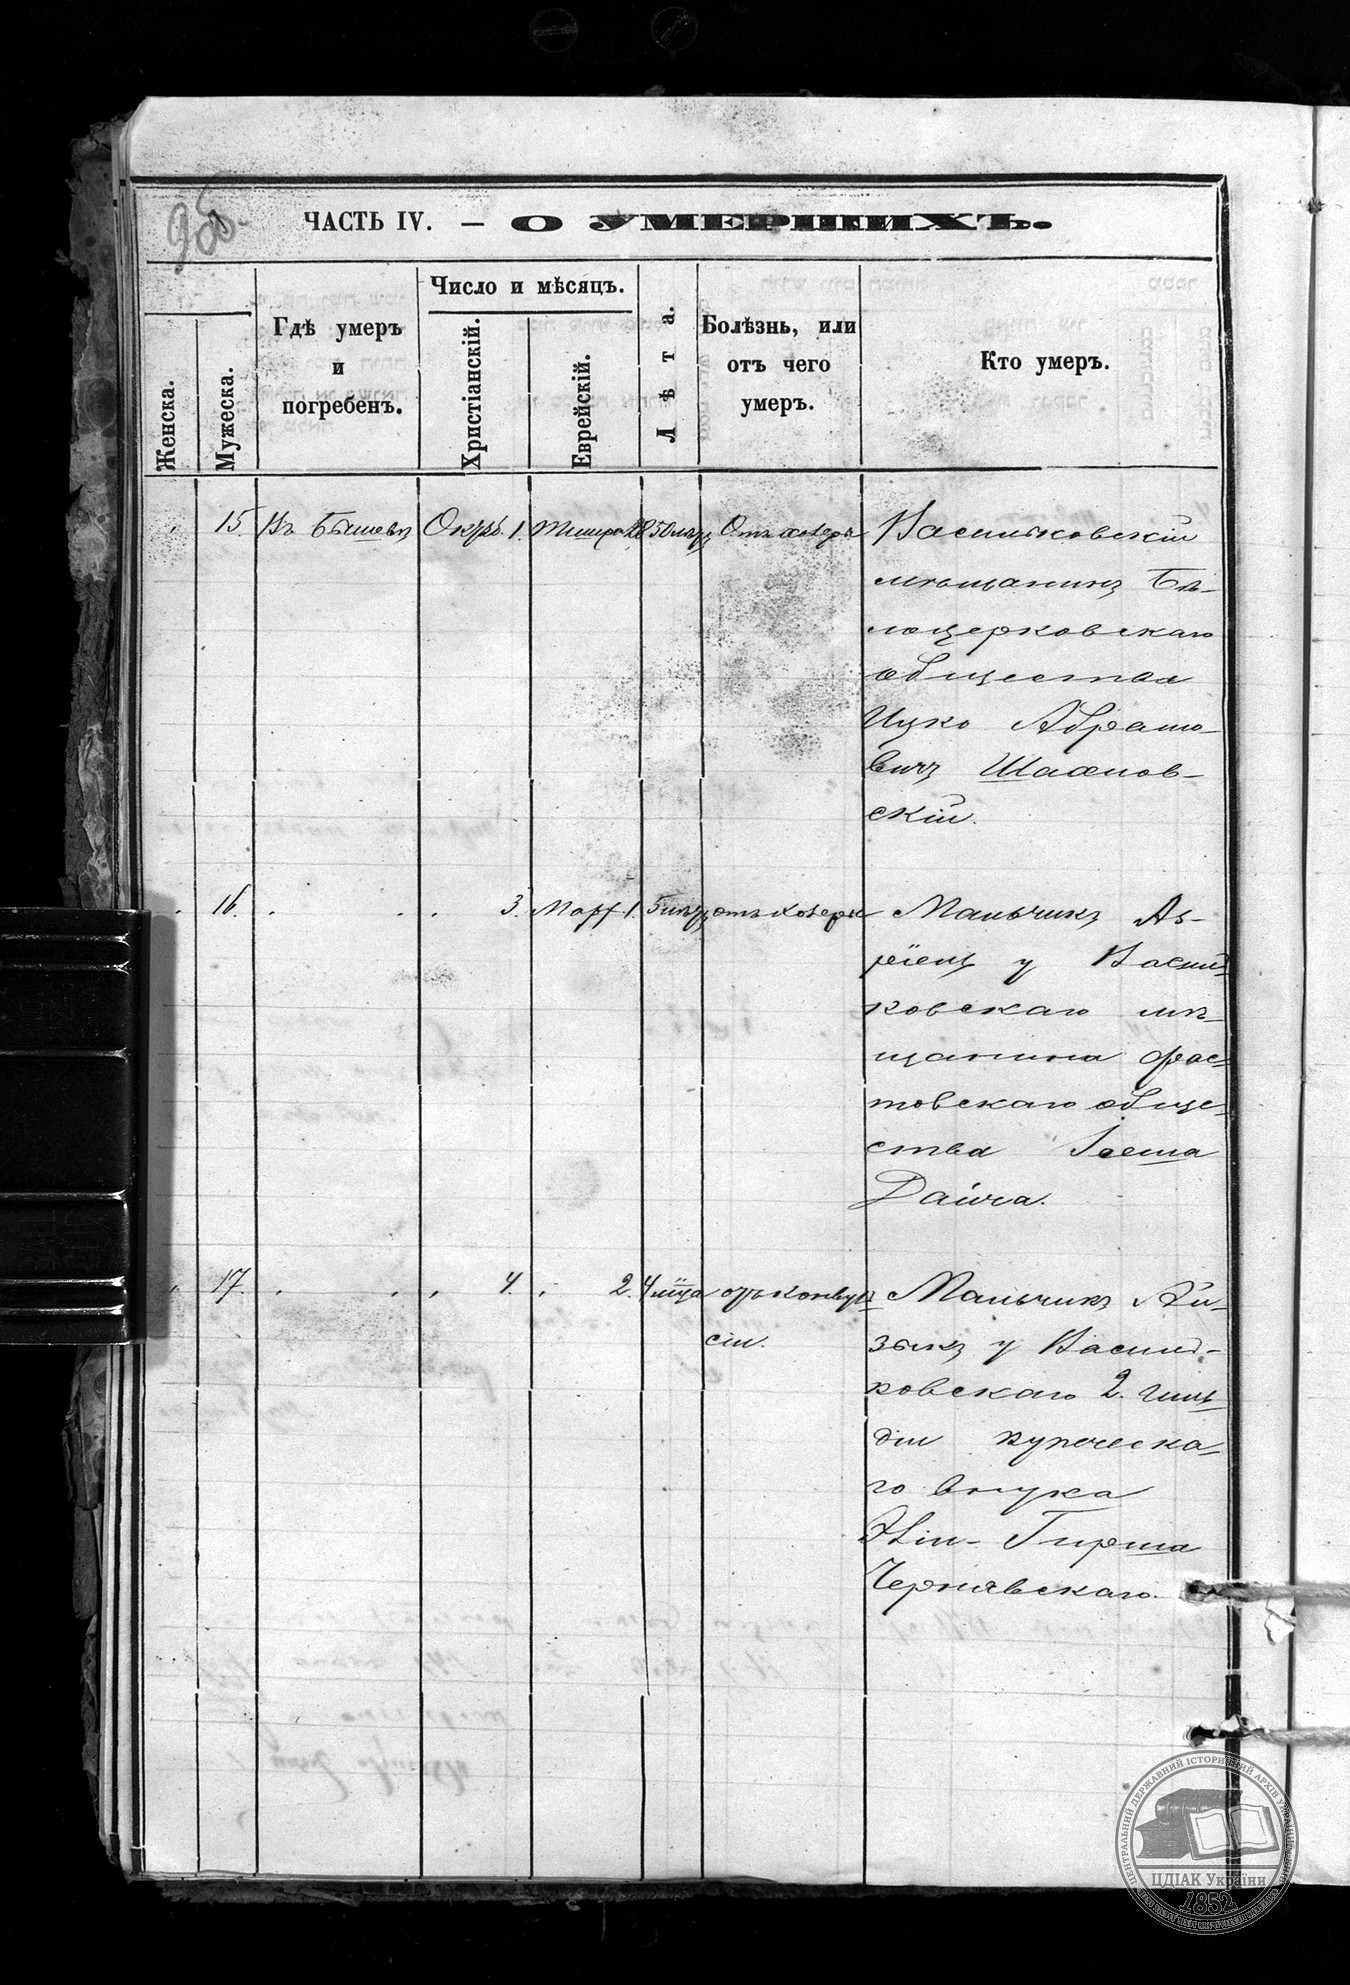 ЧАСТЬ IV. — О УМЕРШИХЪ.
Женска.
Мужеска.
Гдѣ умеръ
и
погребенъ.
Число и мѣсяцъ.
Христіанскій.
Еврейскій.
Лѣта.
Болѣзнь, или
отъ чего
умеръ.
Кто умеръ.
15. Въ Бышевѣ Октяб. 1. Тишри 28 50 лѣтъ Отъ холеры Васильковскій
мѣщанинъ Бѣ-
лоцерковскаго
общества
Ицко Абрамо-
вичъ Шахнов-
скій.
16. 3. 1. 5 лѣтъ отъ холеры Мальчикъ
у Василь-
ковскаго мѣ-
щанина Фас-
товскаго обще-
ства
17. 4. 2. 4 м-ца отъ конвуль-
сіи.
Мальчикъ Ай-
зыкъ у Василь-
ковскаго 2. гиль-
діи купческа-
го внука
Гирша
Чернявскаго.
ЦЕНТРАЛЬНИЙ ДЕРЖАВНИЙ ІСТОРИЧНИЙ АРХІВ УКРАЇНИ
ЦДІАК України
1852